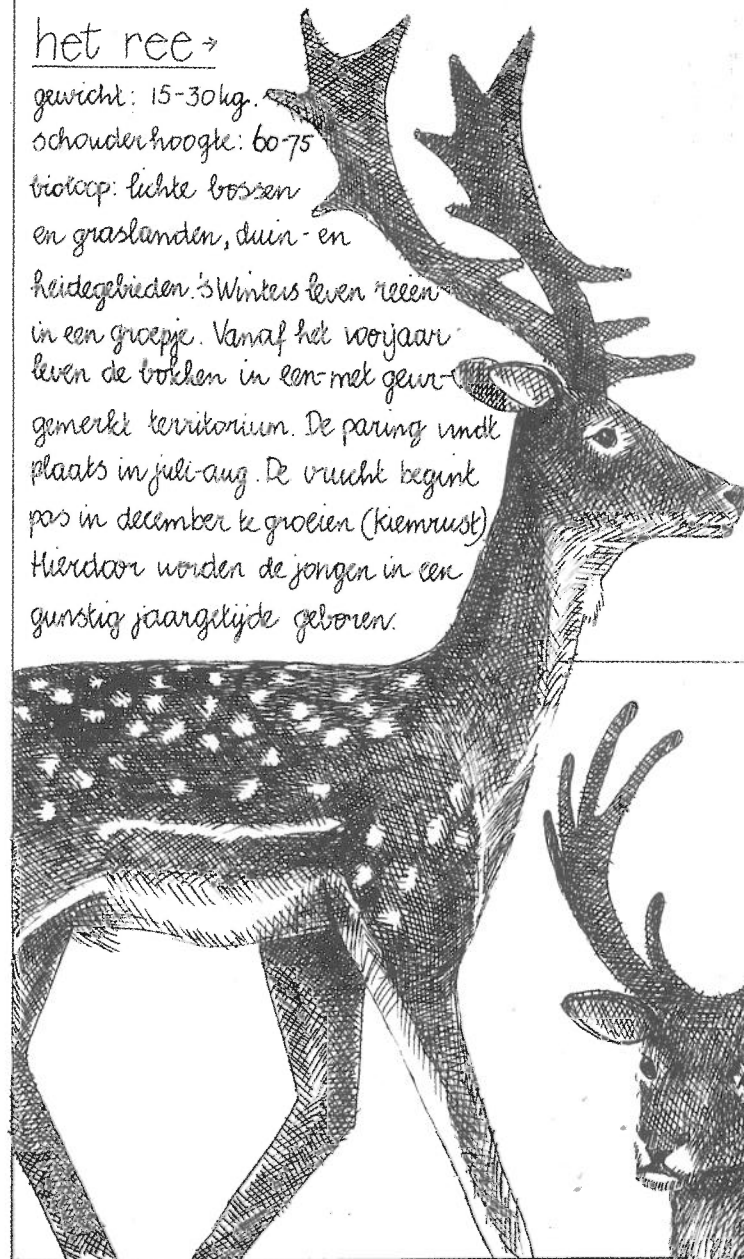 het ree →
gewicht: 15-30kg.
schouderhoogte: 60-75
biotoop: lichte bossen
en graslanden, duin- en
heidegebieden. 's Winters leven reeën
in een groepje. Vanaf het voorjaar
leven de bokken in een-met geur-
gemerkt territorium. De paring vindt
plaats in juli-aug. De vrucht begint
pas in december te groeien (kiemrust)
Hierdoor worden de jongen in een
gunstig jaargetijde geboren.